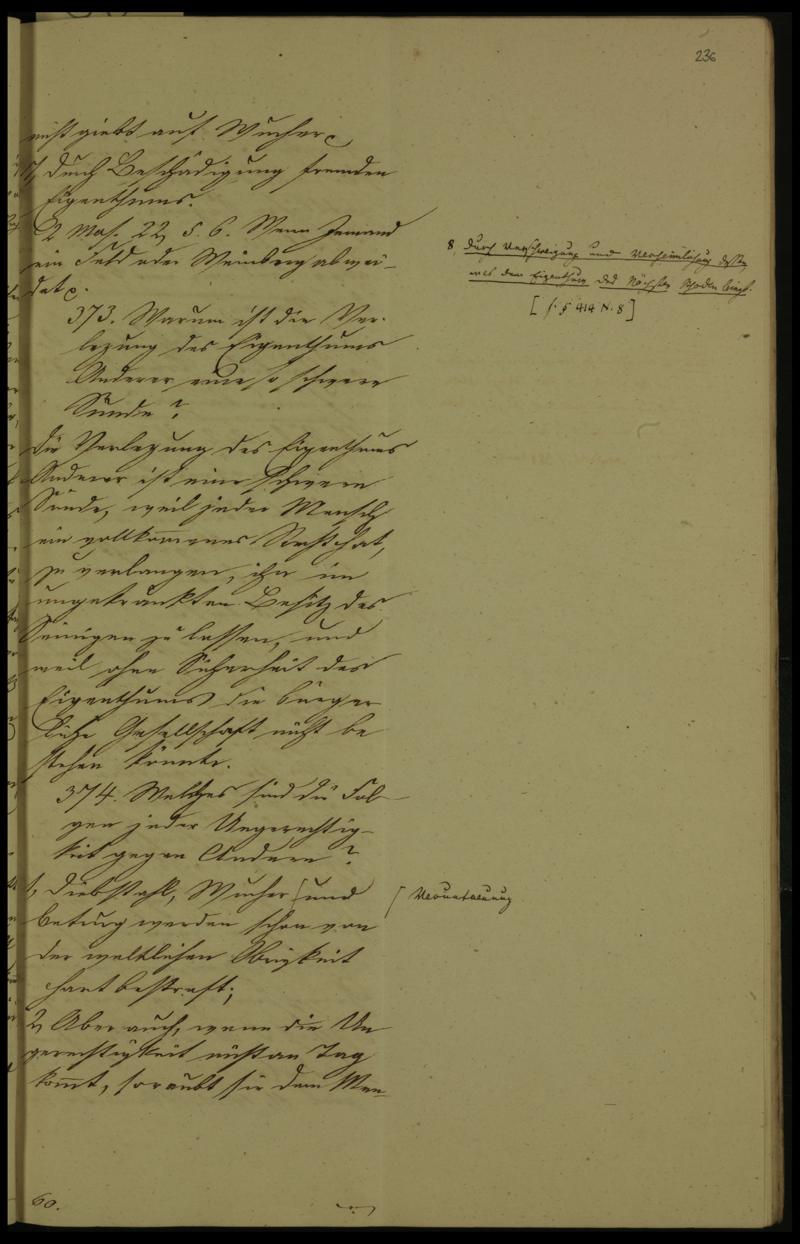 236
nicht giebt auf Wucher ꝛc
7, durch Beschädigung fremden
Eigenthums.
2 Mos. 22, 5. 6. Wenn Jemand
ein Feld oder Weinberg abwei-
det ꝛc.
373. Warum ist die Ver-
lezung des Eigenthums
Anderer eine so schwere
Sünde?
Die Verlezung des Eigenthums
Anderer ist eine schwere
Sünde, weil jeder Mensch
ein vollkom̅enes Recht hat,
zu verlangen, ihn im
ungekränkten Besitz des
Seinigen zu lassen, und
weil ohne Sicherheit des
Eigenthums die bürger
liche Gesellschaft nicht be
stehen könnte.
374. Welches sind die Fol-
gen jeder Ungerechtig-
keit gegen Andere?
1, Diebstahl, Wucher [und
Betrug werden schon von
der weltlichen Obrigkeit
hart bestraft;
2, Aber auch, wenn die Un
gerechtigkeit nicht an Tag
kom̅t, so raubt sie dem Men-
60.
8, durch Verschweigung und Verheimlichung dessen
was dem Eigenthum des Nächsten Schaden bringt.
[s. § 414 N. 8]
[ Veruntreuung